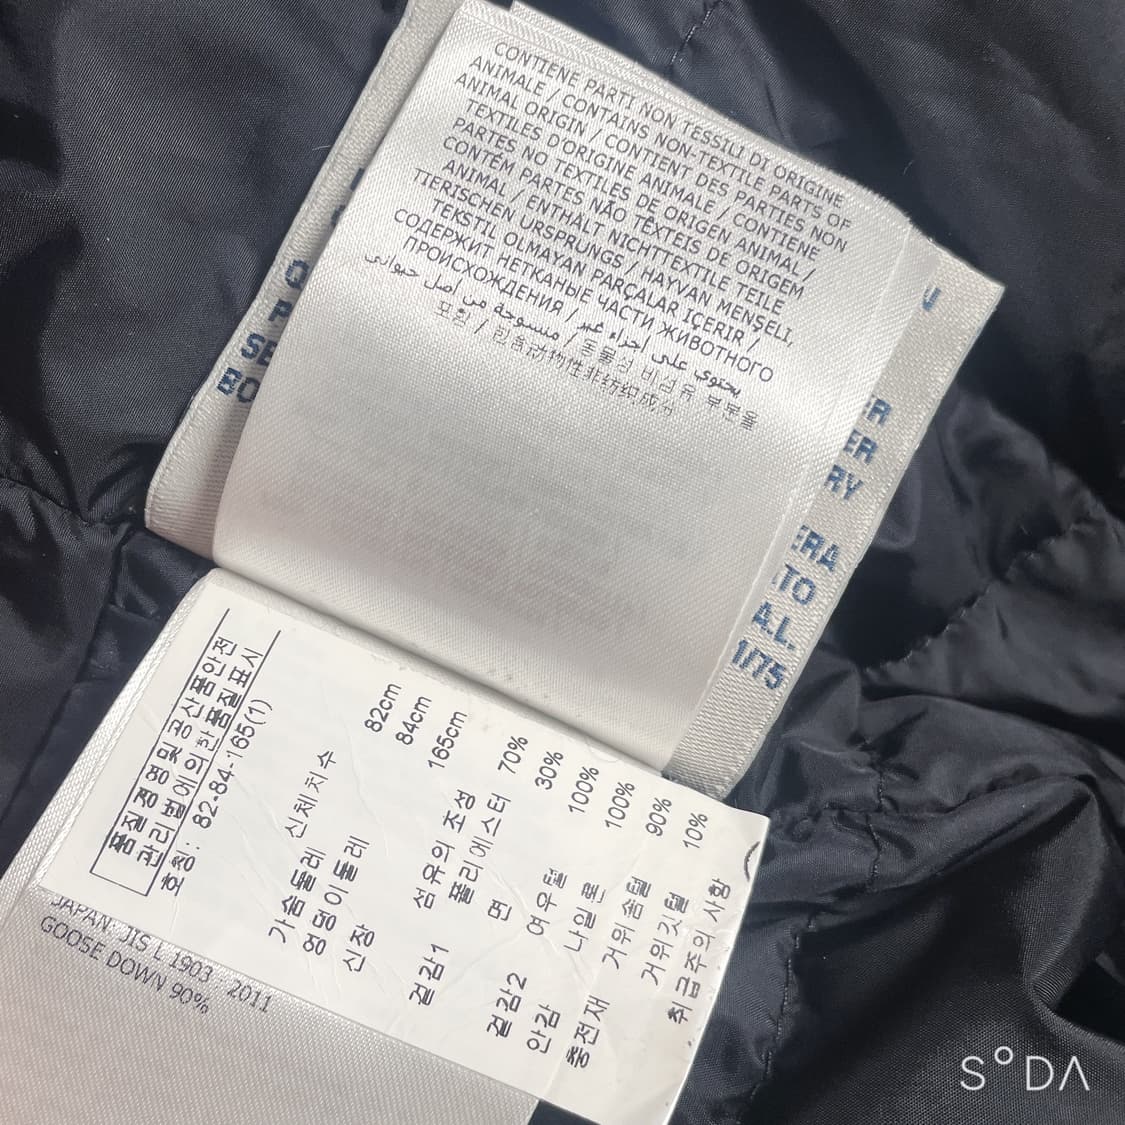 CONTIENE PARTI NON TESSILI DI ORIGINE
ANIMALE / CONTAINS NON-TEXTILE PARTS OF
ANIMAL ORIGIN / CONTIENT DES PARTIES NON
TEXTILES D'ORIGINE ANIMALE / CONTIENE
PARTES NO TEXTILES DE ORIGEN ANIMAL /
CONTÉM PARTES NÃO TÊXTEIS DE ORIGEM
ANIMAL / ENTHÄLT NICHTTEXTILE TEILE
TIERISCHEN URSPRUNGS / HAYVAN MENŞELİ,
TEKSTİL OLMAYAN PARÇALAR İÇERİR /
СОДЕРЖИТ НЕТКАНЫЕ ЧАСТИ ЖИВОТНОГО
ПРОИСХОЖДЕНИЯ / يحتوي على أجزاء غير
منسوجة من أصل حيواني / 동물성 비섬유 부분을
포함 / 包含动物性非纺织成分
Q
P
SE
BO
ER
ER
RY
ERA
TO
A.L.
1/75
품질경영 및 공산품안전
관리법에 의한 품질표시
호칭: 82-84-165(1)
신체치수
가슴둘레 82cm
엉덩이둘레 84cm
신장 165cm
섬유의 조성
겉감1 폴리에스터 70%
면 30%
겉감2 여우털 100%
안감 나일론 100%
충전재 거위솜털 90%
거위깃털 10%
취급주의사항
JAPAN: JIS L 1903 - 2011
GOOSE DOWN 90%
SODA